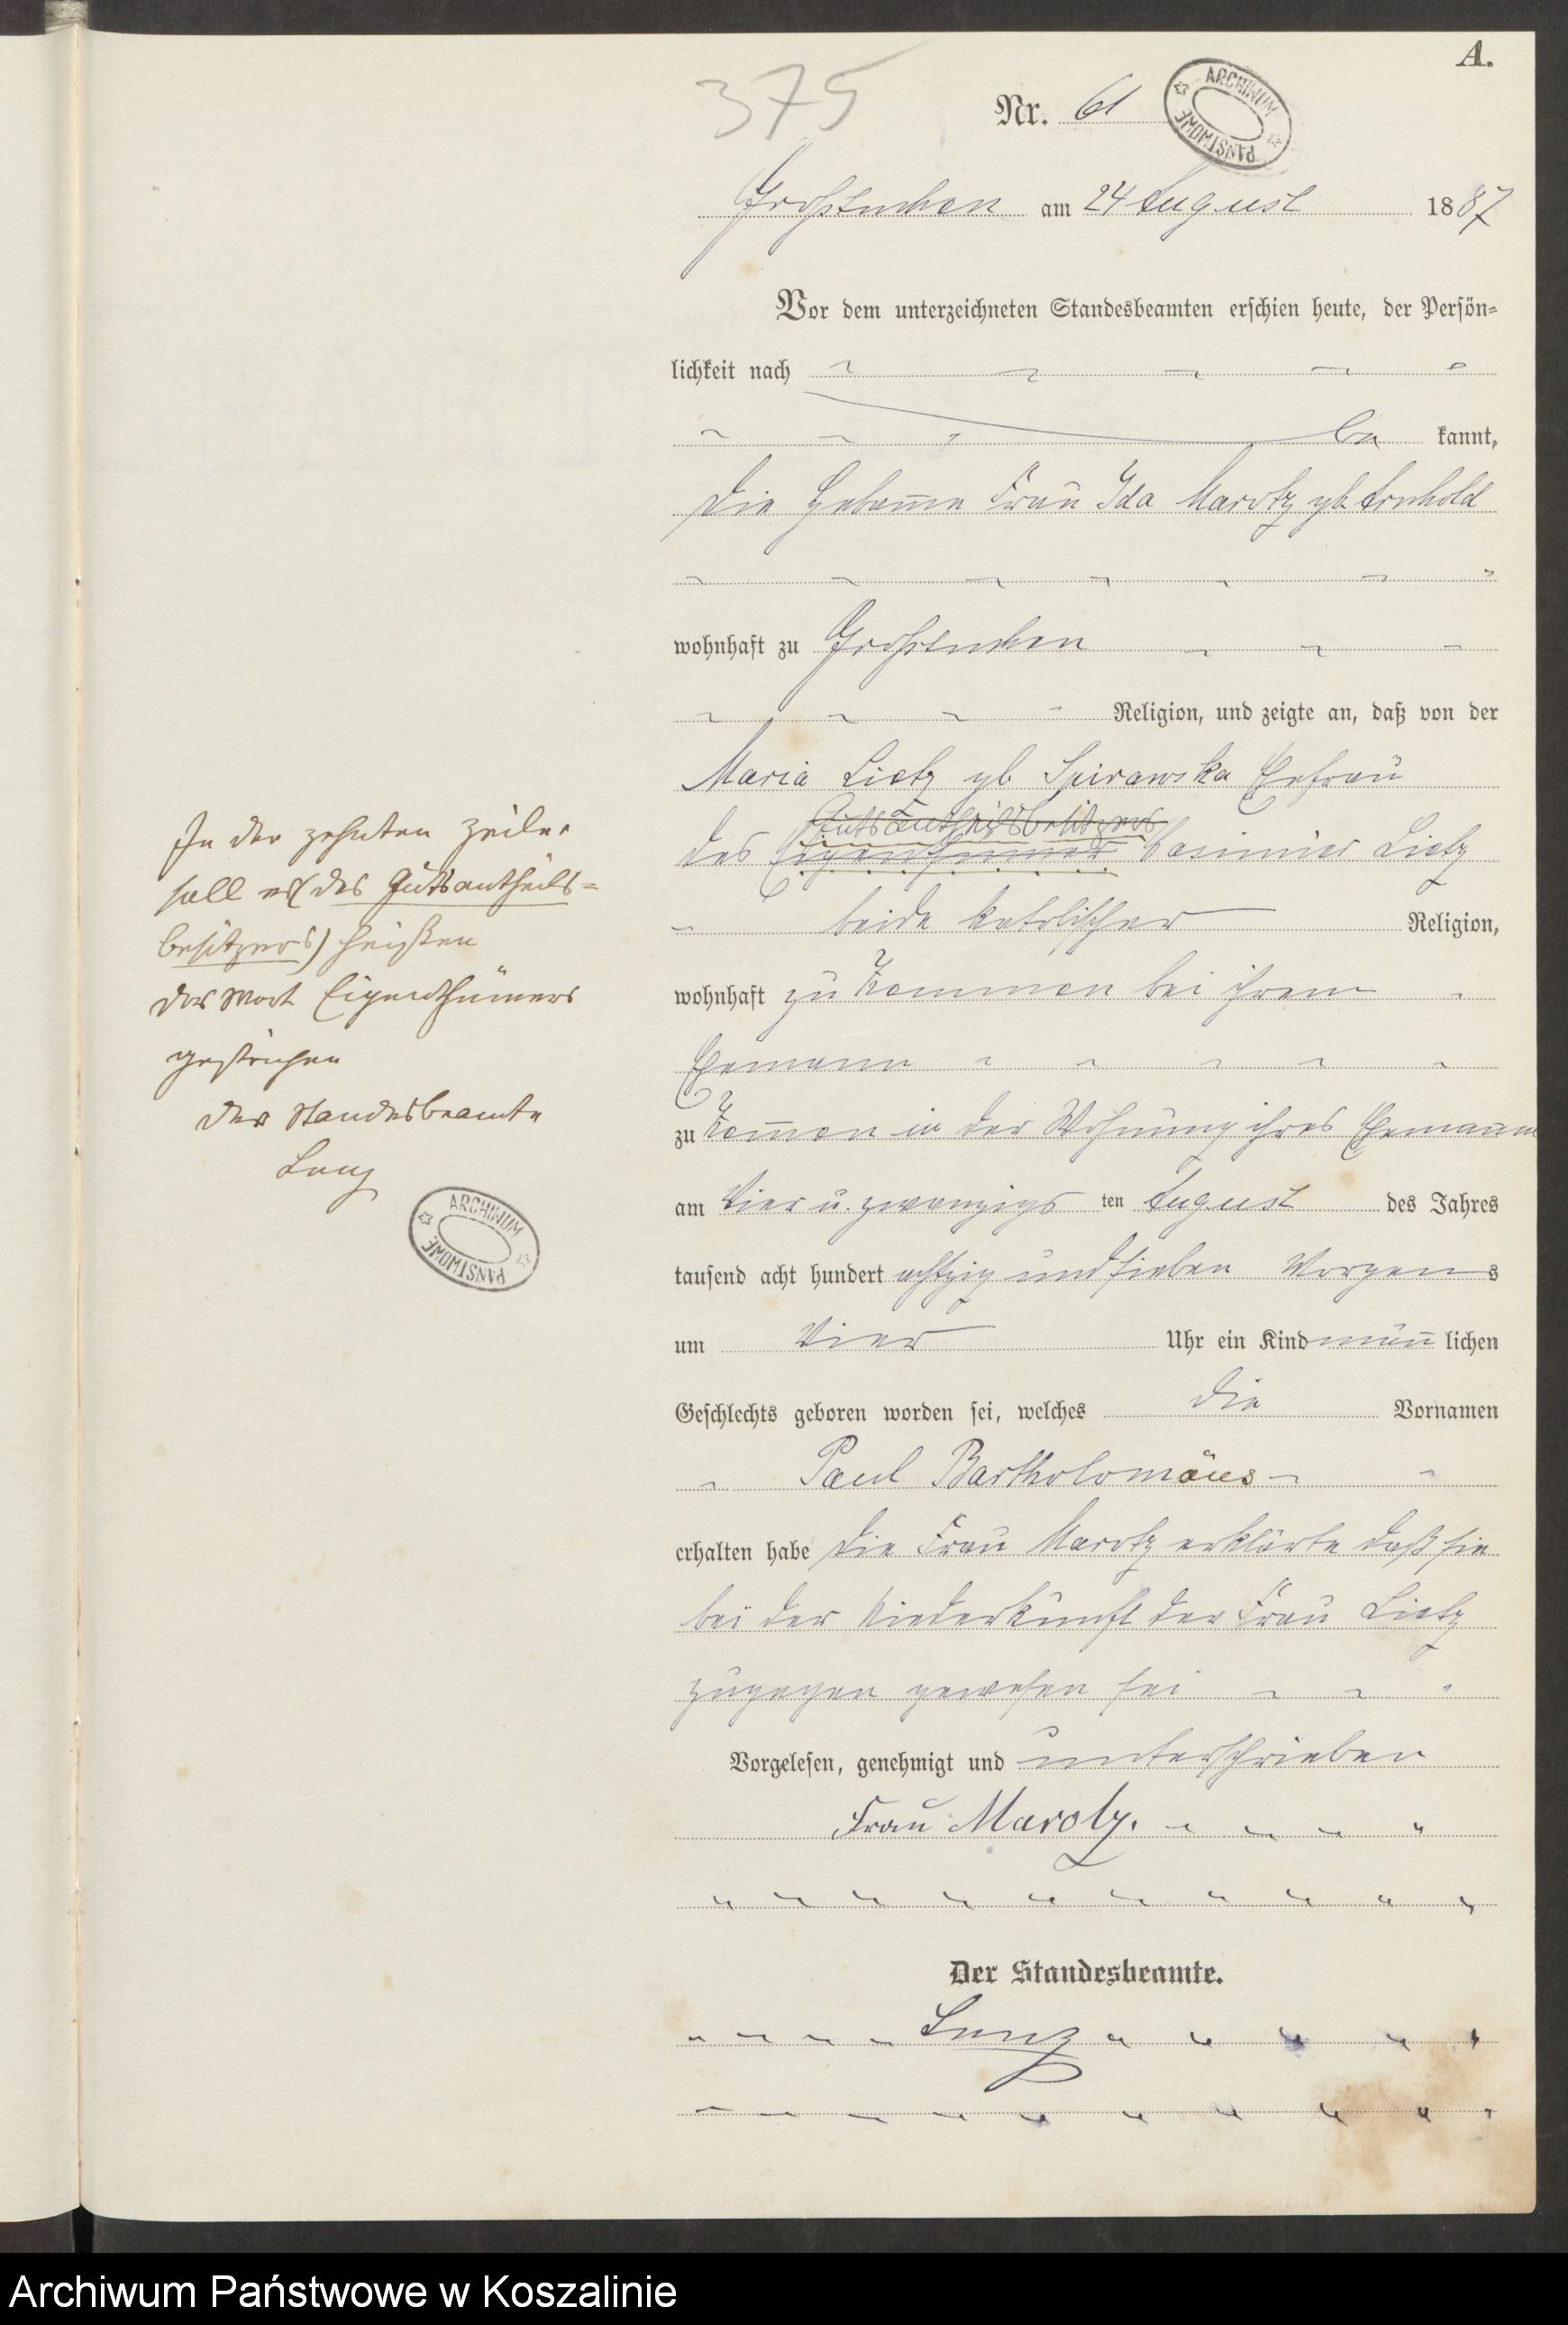 A.
375
Nr. 61
ARCHIWUM PAŃSTWOWE
Großtuchen am 24 August 1887
Vor dem unterzeichneten Standesbeamten erschien heute, der Persön-
lichkeit nach
be kannt,
die Hebamme Frau Ida Marotz gb Arnhold
wohnhaft zu Großtuchen
Religion, und zeigte an, daß von der
Maria Lietz gb Spirawska Ehefrau
Gutsantheilsbesitzers
des Eigenthümers Casimier Lietz
beide katolischer Religion,
wohnhaft zu Kommen bei ihrem
Ehemann
zu Kom̄en in der Wohnung ihres Ehemanns
am vier u. zwanzigs ten August des Jahres
tausend acht hundert achtzig und sieben Morgens
um vier Uhr ein Kind männ lichen
Geschlechts geboren worden sei, welches die Vornamen
Paul Bartholomäus
erhalten habe die Frau Marotz erklärte daß sie
bei der Niederkunft der Frau Lietz
zugegen gewesen sei
Vorgelesen, genehmigt und unterschrieben
Frau Marotz.
Der Standesbeamte.
Lenz
In der zehnten Zeile
soll es (des Gutsantheils=
besitzers) heißen
das Wort Eigenthümers
gestrichen
Der Standesbeamte
Lenz
ARCHIWUM PAŃSTWOWE
Archiwum Państwowe w Koszalinie